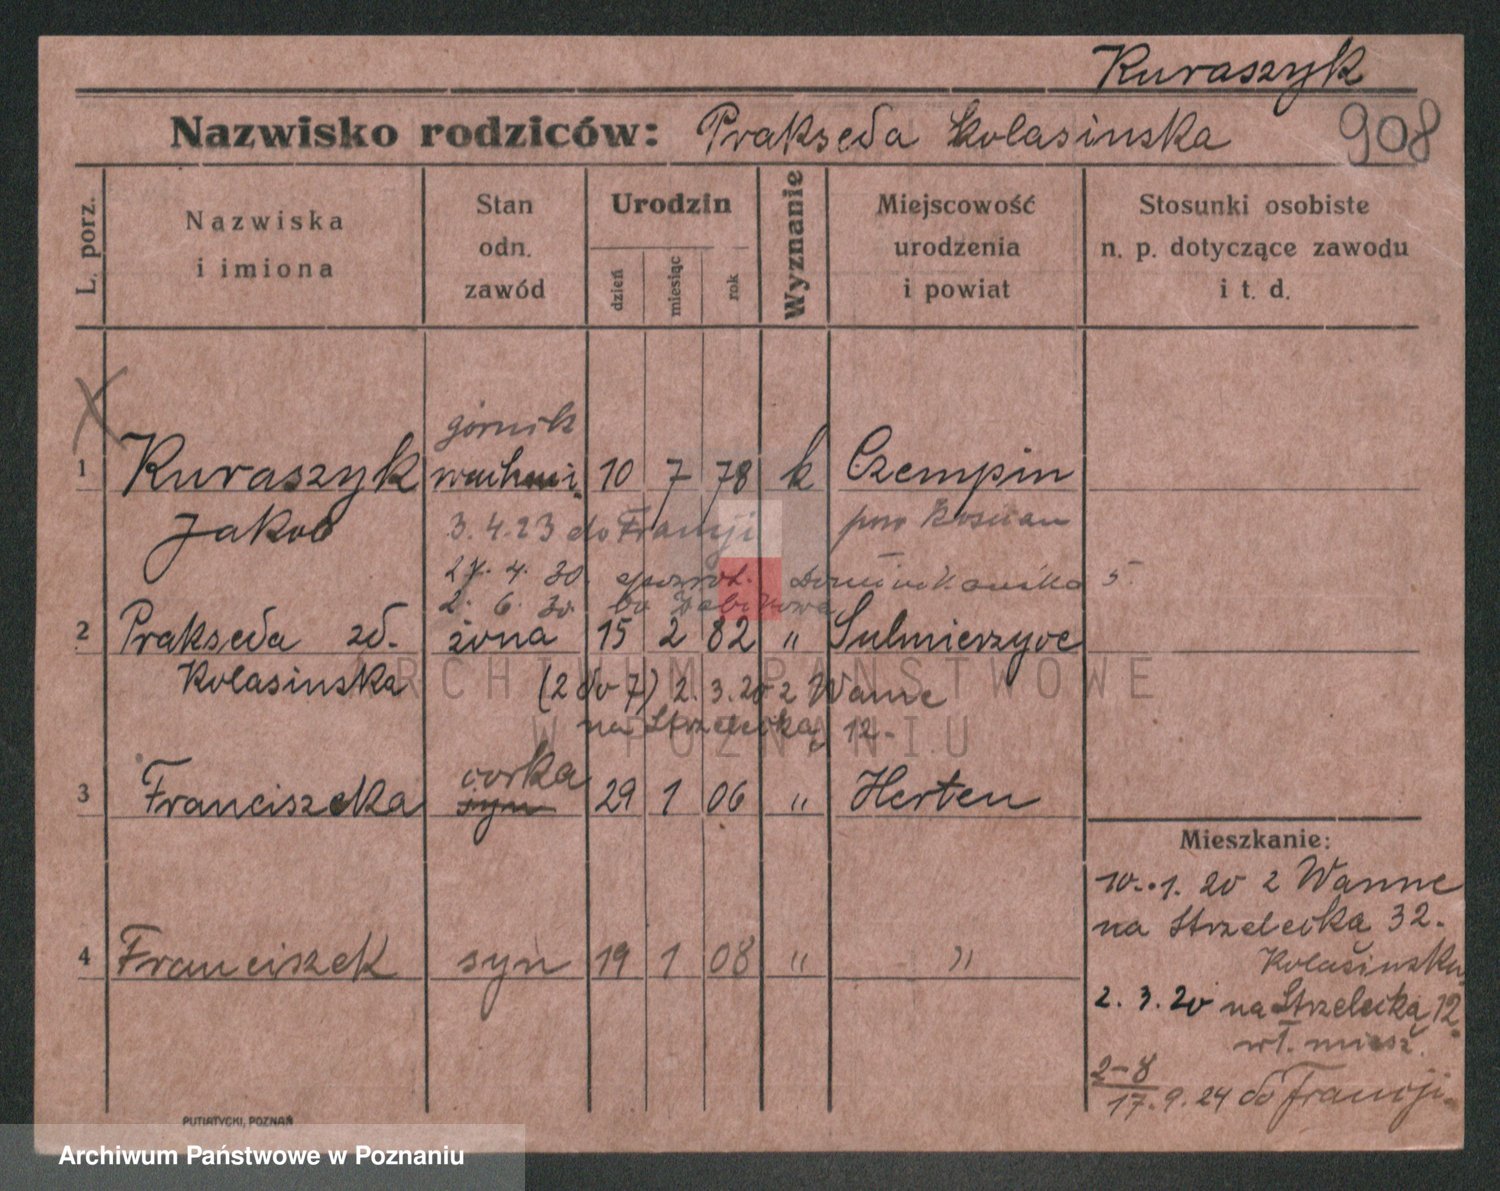 Kuraszyk
Nazwisko rodziców: Prakseda Kolasinska 908
L. porz.
Nazwiska
i imiona
Stan
odn.
zawód
Urodzin
dzień
miesiąc
rok
Wyznanie
Miejscowość
urodzenia
i powiat
Stosunki osobiste
n. p. dotyczące zawodu
i t. d.
górnik
1 Kuraszyk 10 7 78 k Czempin
Jakob 3.4.23 do Francji pow
27. 4. 30. Dominikańska 5.
2. 6. 30.
2 Prakseda zd. żona 15 2 82 " Sulmierzyce
Kolasinska (2 do 7) 2. 3. 20 z Wanne
na Strzelecką 12.
córka
3 Franciszeka syn 29 1 06 " Herten
4 Franciszek syn 19 1 08 " "
Mieszkanie:
10. 1. 20 z Wanne
na Strzelecka 32.
Kolasinska
2. 3. 20 na Strzelecką 12.
wł. miesz.
2-8
17. 9. 24 do Francji.
PUTIATYCKI, POZNAŃ
ARCHIWUM PAŃSTWOWE
W POZNANIU
Archiwum Państwowe w Poznaniu